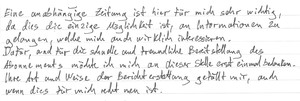 Eine unabhängige Zeitung ist hier für mich sehr wichtig,
da dies die einzige Möglichkeit ist, an Informationen zu
gelangen, welche mich auch wirklich interessieren.
Dafür, und für die schnelle und freundliche Bereitstellung des
Abonnements möchte ich mich an dieser Stelle erst einmal bedanken.
Ihre Art und Weise der Berichterstattung gefällt mir, auch
wenn dies für mich recht neu ist.